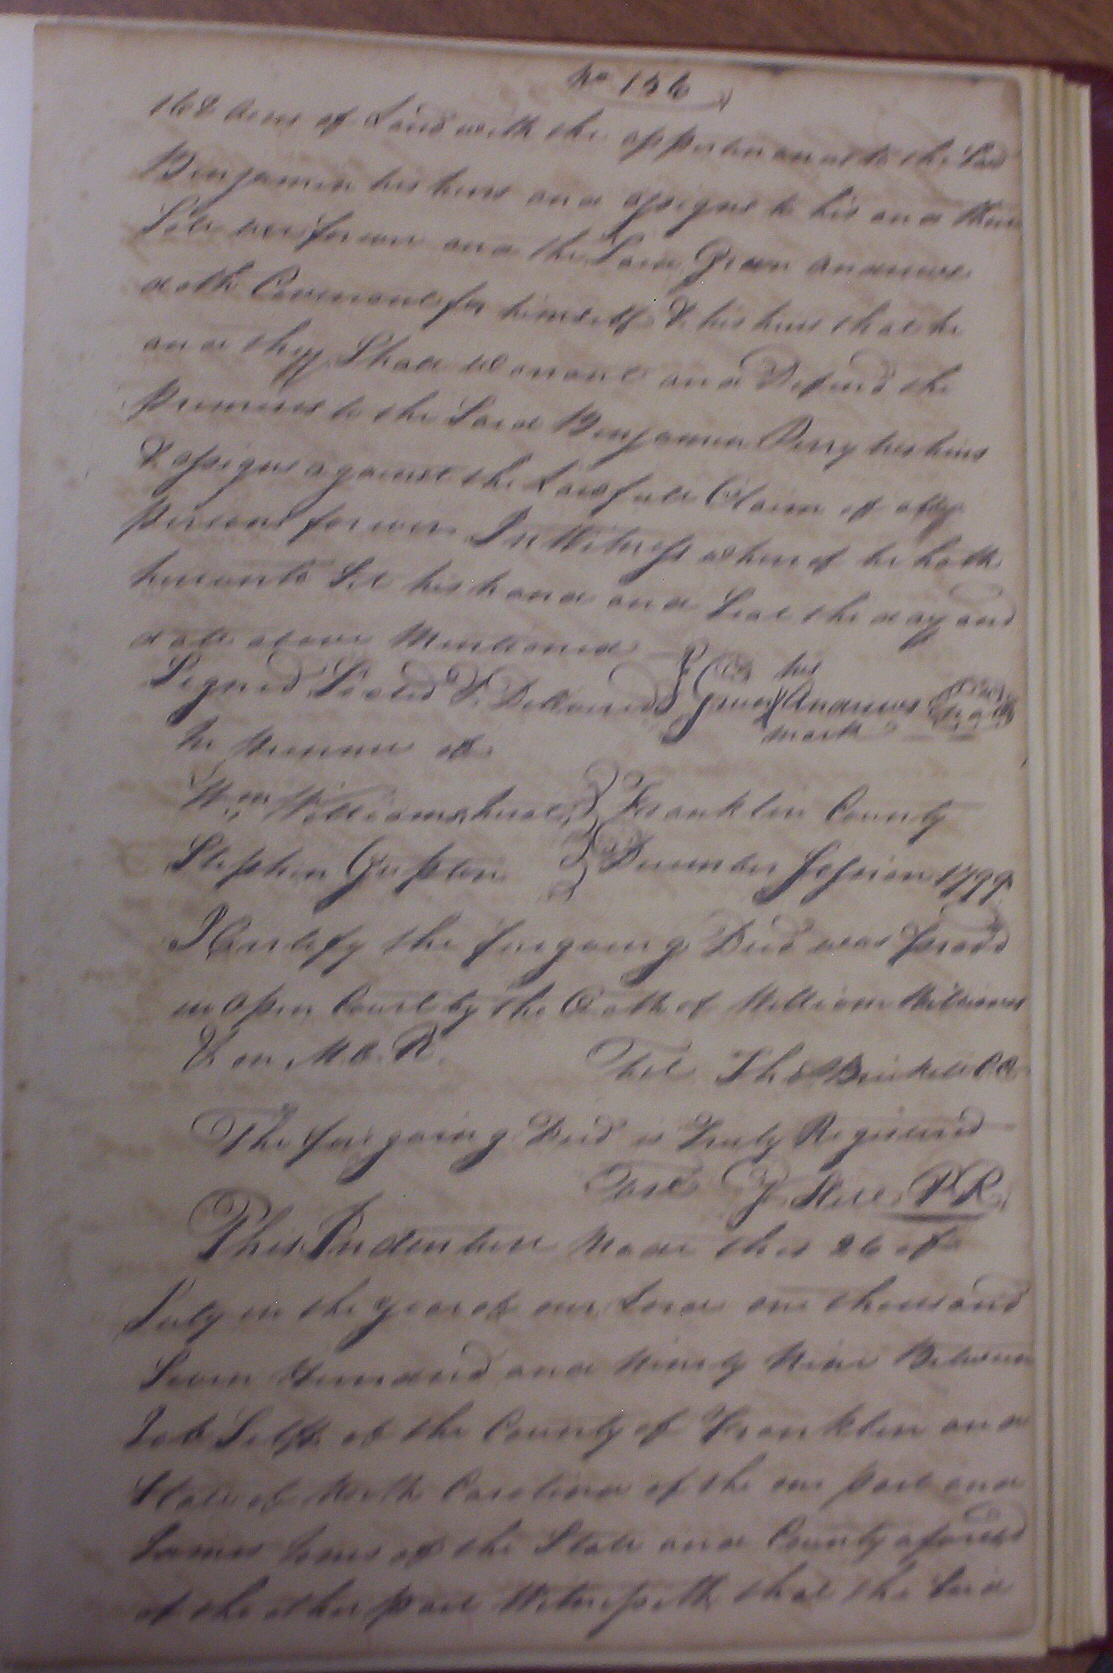 No 156
168 Acres of Land with the appurtenances to the Said
Benjamin his heirs and assigns to his and their
Sole use forever and the Said Green Andrews
doth Covenant for himself & his heirs that he
and they Shall Warrant and Defend the
premises to the Said Benjamin Perry his heirs
& assigns against the Lawfull Claim of all
persons forever In Witness whereof he hath
hereunto Set his hand and Seal the day and
date above Mentioned
Signed Sealed & Delivered } Green his X Andrews Seal
mark
In presence of
Wm Williams } Franklin County
Stephen Gupton } December Session 1799
I Certify the foregoing Deed was provd
in Open Court by the Oath of William Williams
& on M O. R. Test
The foregoing Deed is Truly Registered
Test J Hill P R
This Indenture Made this 26 of
July in the year of our Lord one thousand
Seven Hundred and Ninety Nine Between
of the County of Franklin and
State of North Carolina of the one part and
James of the State and County aforesd
of the other part Witnesseth that the Said